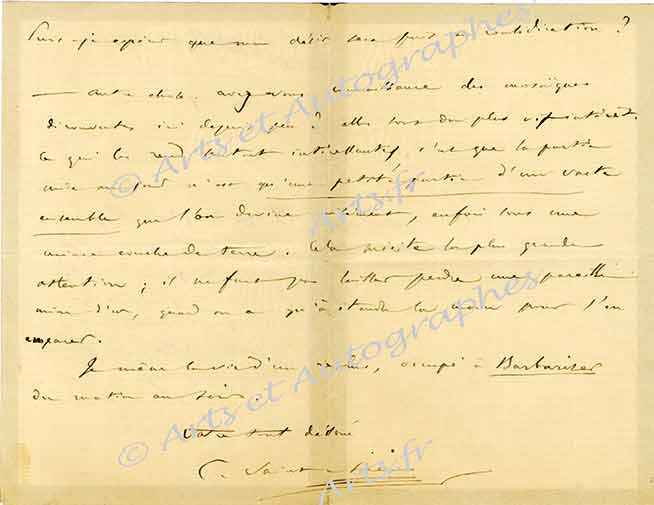 Puis-je espérer que mon désir sera pris en considération ?
— Autre chose. avez-vous connaissance des mosaïques
découvertes ici depuis peu ? elles sont du plus vif intérêt.
Ce qui les rend surtout c'est que la partie
mise au jour n'est qu'une petite partie d'un vaste
ensemble que l'on devine aisément, enfoui sous une
mince couche de terre. Cela mérite la plus grande
attention ; il ne faut pas laisser perdre une pareille
mine d'or, quand on a qu'à étendre la main pour s'en
emparer.
Je mène la vie d'un reclus, occupé à Barbariser
du matin au soir.
Votre tout dévoué
C. Saint-Saëns
© Arts et Autographes
Arts.fr
© Arts et Autographes
Arts.fr